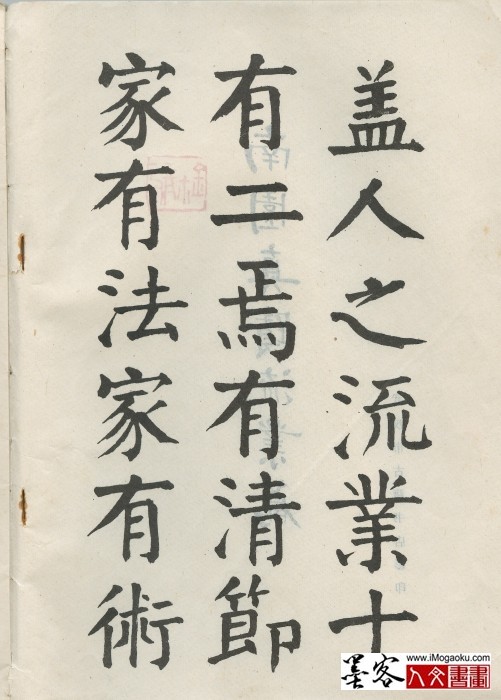 盖人之流業十
有二焉有清節
家有法家有術
墨客
www.iMogaoku.com
人文書畫